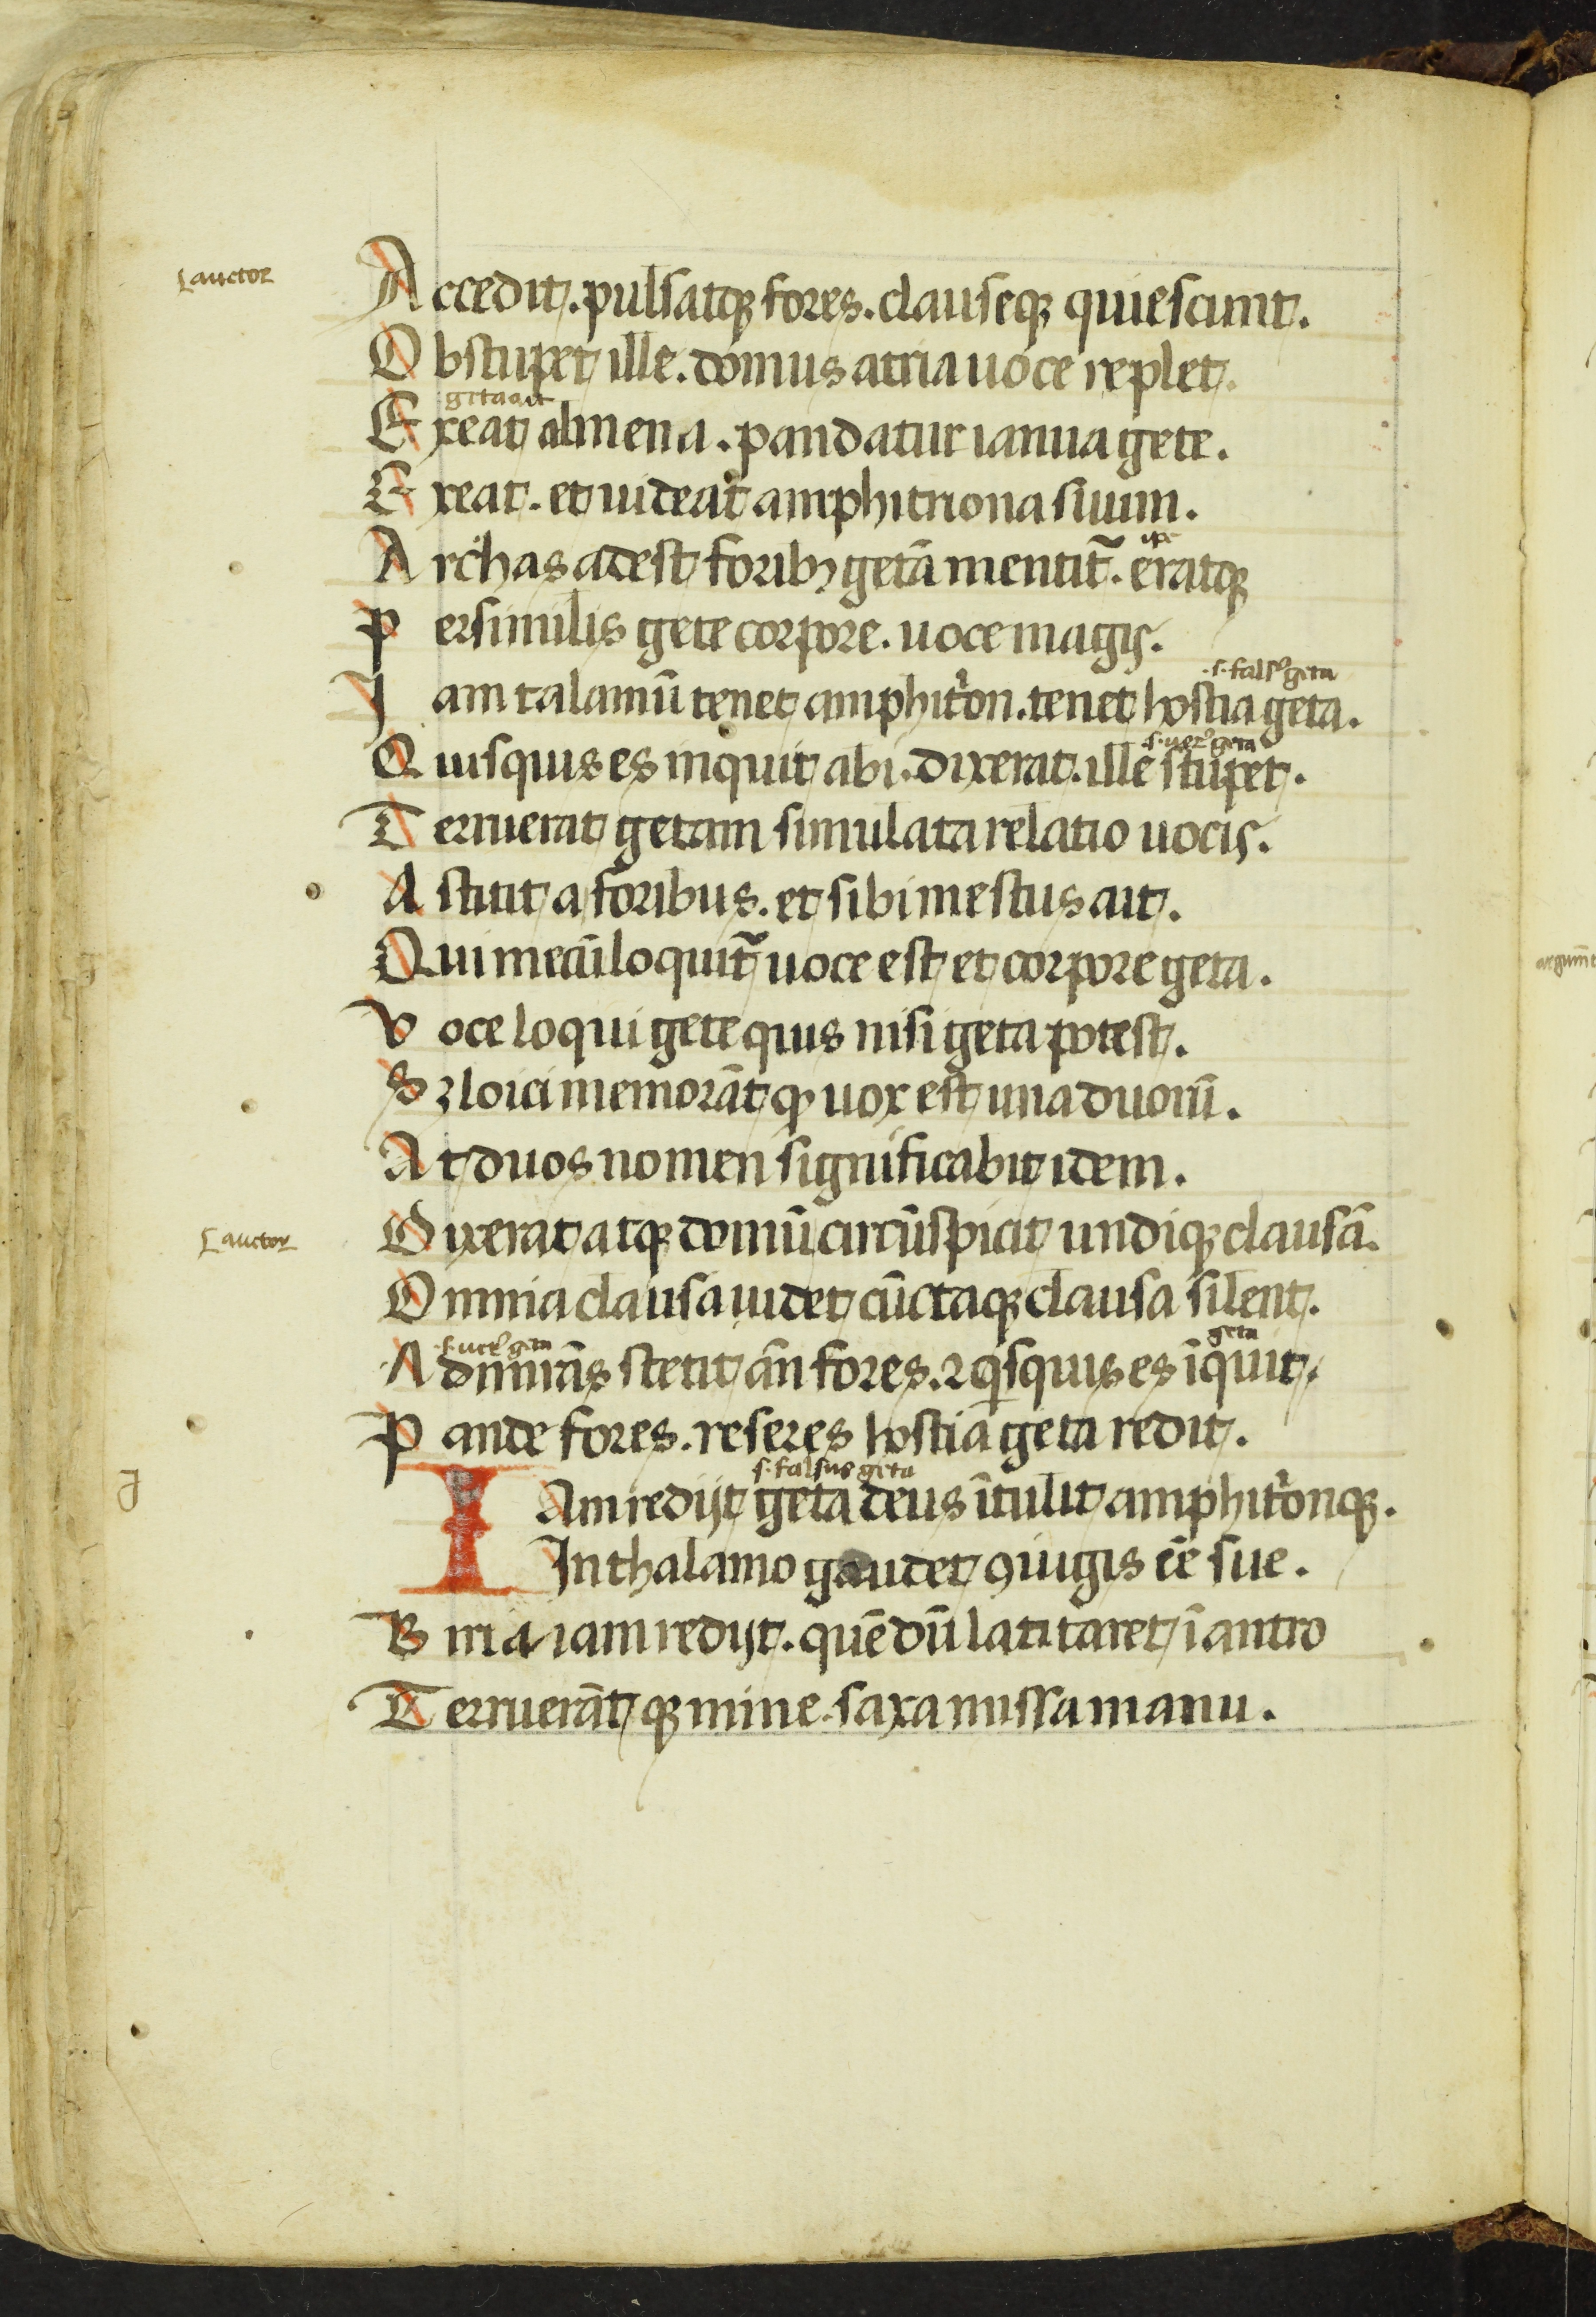 auctor
Accedit. pulsatqꝫ fores. clauseqꝫ quiescunt.
Obstupet ille. domus atria uoce replet.
geta ait
Exeat almena. pandatur ianua gete.
Exeat. et uideat amphitriona suum.
ipe
Archas adest foribꝫ getā mentit᷑. eratqꝫ
Persimilis gete corpore. uoce magis.
.s. falsꝰ geta
Jam talamū tenet amphitͥon. tenet hostia geta.
.s. uerꝰ geta
Quisquis es inquit abi. dixerat. ille stupet.
Terruerat getam simulata relatio uocis.
Astitit a foribus. et sibi mestus ait.
Qui mecū loquit᷑ uoce est et corpore geta.
Voce loqui gete quis nisi geta potest.
Sꝫ loici memorāt ꝙ uox est una duorū.
At duos nomen significabit idem.
auctor
Dixerat atqꝫ domū circūspicit undiqꝫ clausā.
Omnia clausa uidet cūctaqꝫ clausa silent.
.s. uerꝰ geta
geta
Admirās stetit an̄ fores. ⁊ qͥsquis es īquit.
Pande fores. reseres hostia geta redit.
J
s. falsus geta
IAm redijt geta deus ītulit amphitͥonqꝫ.
In thalamo gaudet ꝯiugis eē sue.
Birria iam redijt. quē dū latitaret ī antro
Terruerāt qꝫ mine. saxa missa manu.